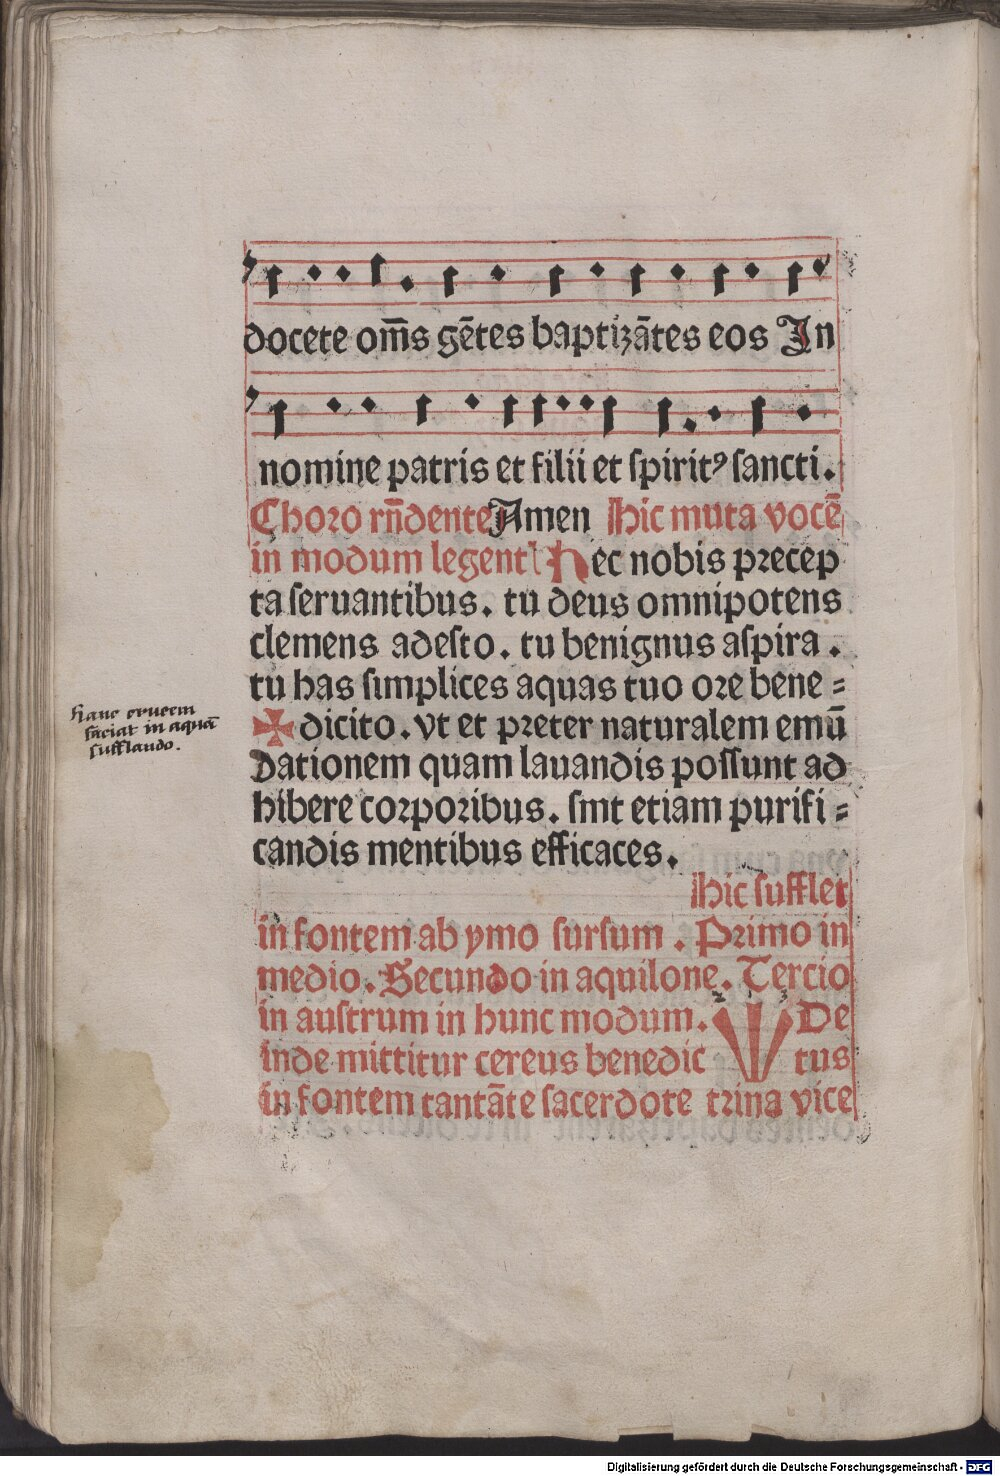 docete om̄s gētes baptizātes eos In
nomine patris et filii et spiritꝰ sancti.
Choro rn̄dente Amen Hic muta vocē
in modum legent Hec nobis precep
ta seruantibus. tu deus omnipotens
clemens adesto. tu benignus aspira.
tu has simplices aquas tuo ore bene=
✠ dicito. vt et preter naturalem emū
dationem quam lauandis possunt ad
hibere corporibus. sint etiam purifi=
candis mentibus efficaces.
Hic sufflet
in fontem ab ymo sursum. Primo in
medio. Secundo in aquilone. Tercio
in austrum in hunc modum. 2 1 3 De
inde mittitur cereus benedic tus
in fontem tantāte sacerdote trina vice
hanc crucem
faciat in aquā
sufflando.
Digitalisierung gefördert durch die Deutsche Forschungsgemeinschaft - DFG